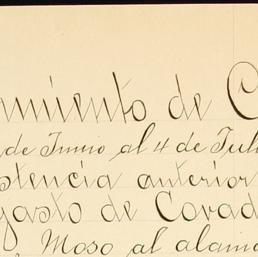 miento de C
de Junio al 4 de Jul
stencia anterior
gasto de Covad
Moso al alam